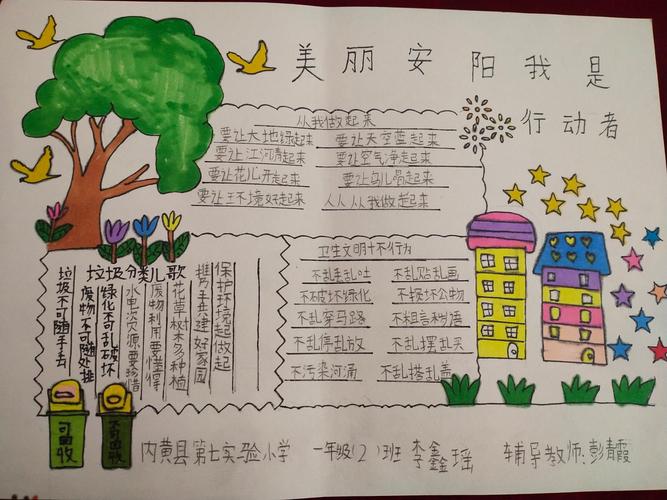 美丽安阳我是
行动者
从我做起来
要让大地绿起来 要让天空蓝起来
要让江河清起来 要让空气净起来
要让花儿开起来 要让鸟儿唱起来
要让王不境好起来 人人从我做起来
垃圾分类儿歌
垃圾不可随手丢
废物不可随处堆
绿化不可乱破坏
水电资源要珍惜
废物利用要懂得
花草树木多种植
携手共建好家园
保护环境起做起
卫生文明十不行为
不乱丢乱吐 不乱贴乱画
不破坏绿化 不损坏公物
不乱穿马路 不粗言秽语
不乱停乱放 不乱摆乱买
不污染河涌 不乱搭乱盖
可回收
不可回收
内黄县第七实验小学 一年级(2)班 李鑫瑶 辅导教师:彭青霞